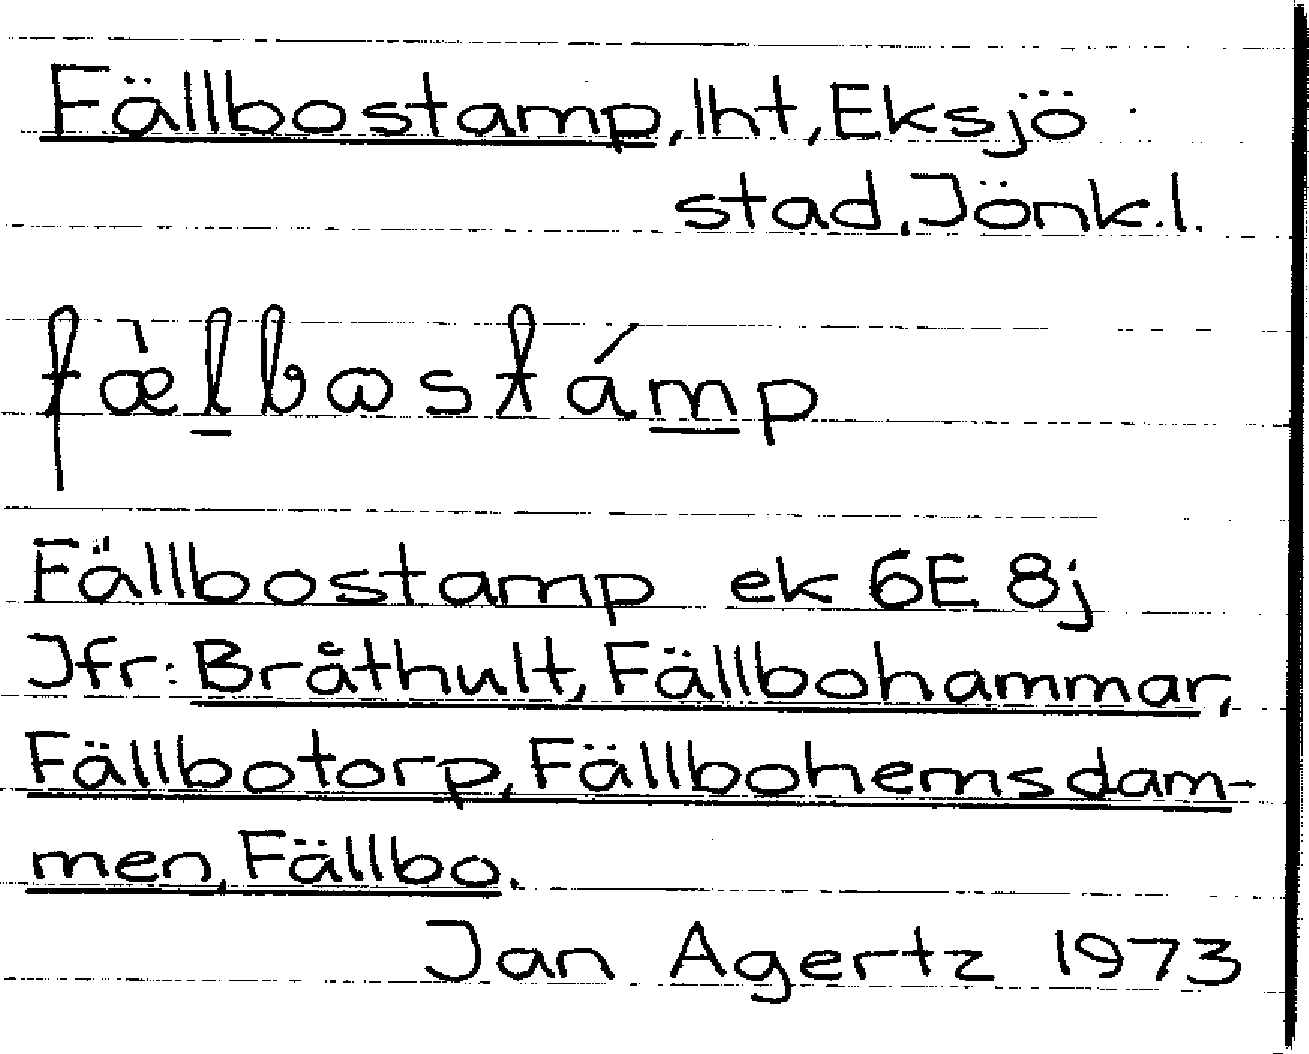 Fällbostamp, lht, Eksjö
stad, Jönk.l.
fæ̀lbɷstámp
Fällbostamp ek 6E 8j
Jfr: Bråthult, Fällbohammar,
Fällbotorp, Fällbohemsdam-
men, Fällbo.
Jan Agertz 1973